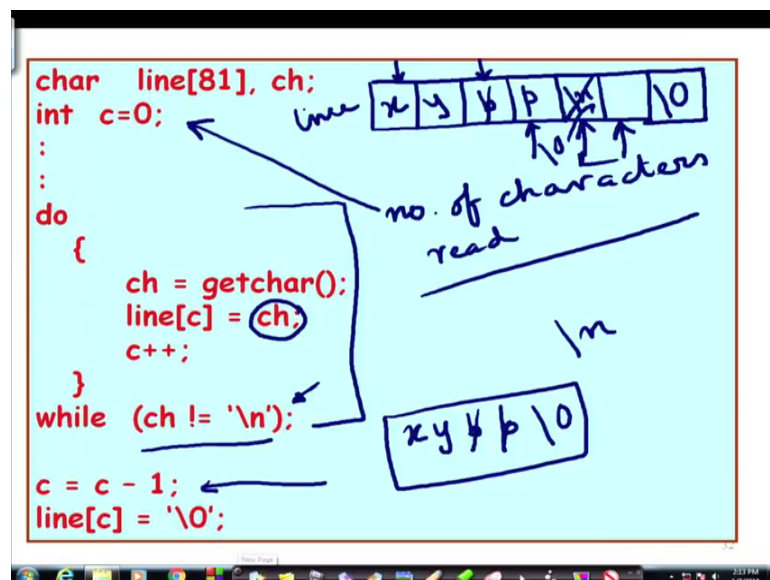 char line[81], ch;
int c=0;
:
:
do
{
ch = getchar();
line[c] = ch;
c++;
}
while (ch != '\n');
c = c - 1;
line[c] = '\0';
line x y b p \n \0
\0
no. of characters
read
\n
x y b p \0
32
New Page
2:13 PM